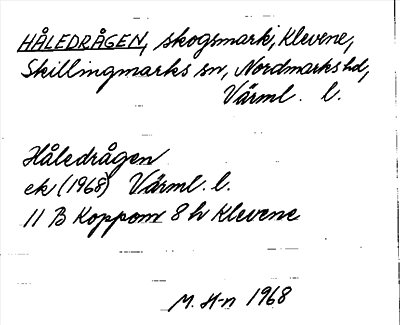 HÅLEDRÅGEN, skogsmark, Klevene,
Skillingmarks sn, Nordmarks hd,
Värml. l.
Håledrågen
ek (1968) Värml. l.
11 B Koppom 8 h Klevene
M. H-n 1968